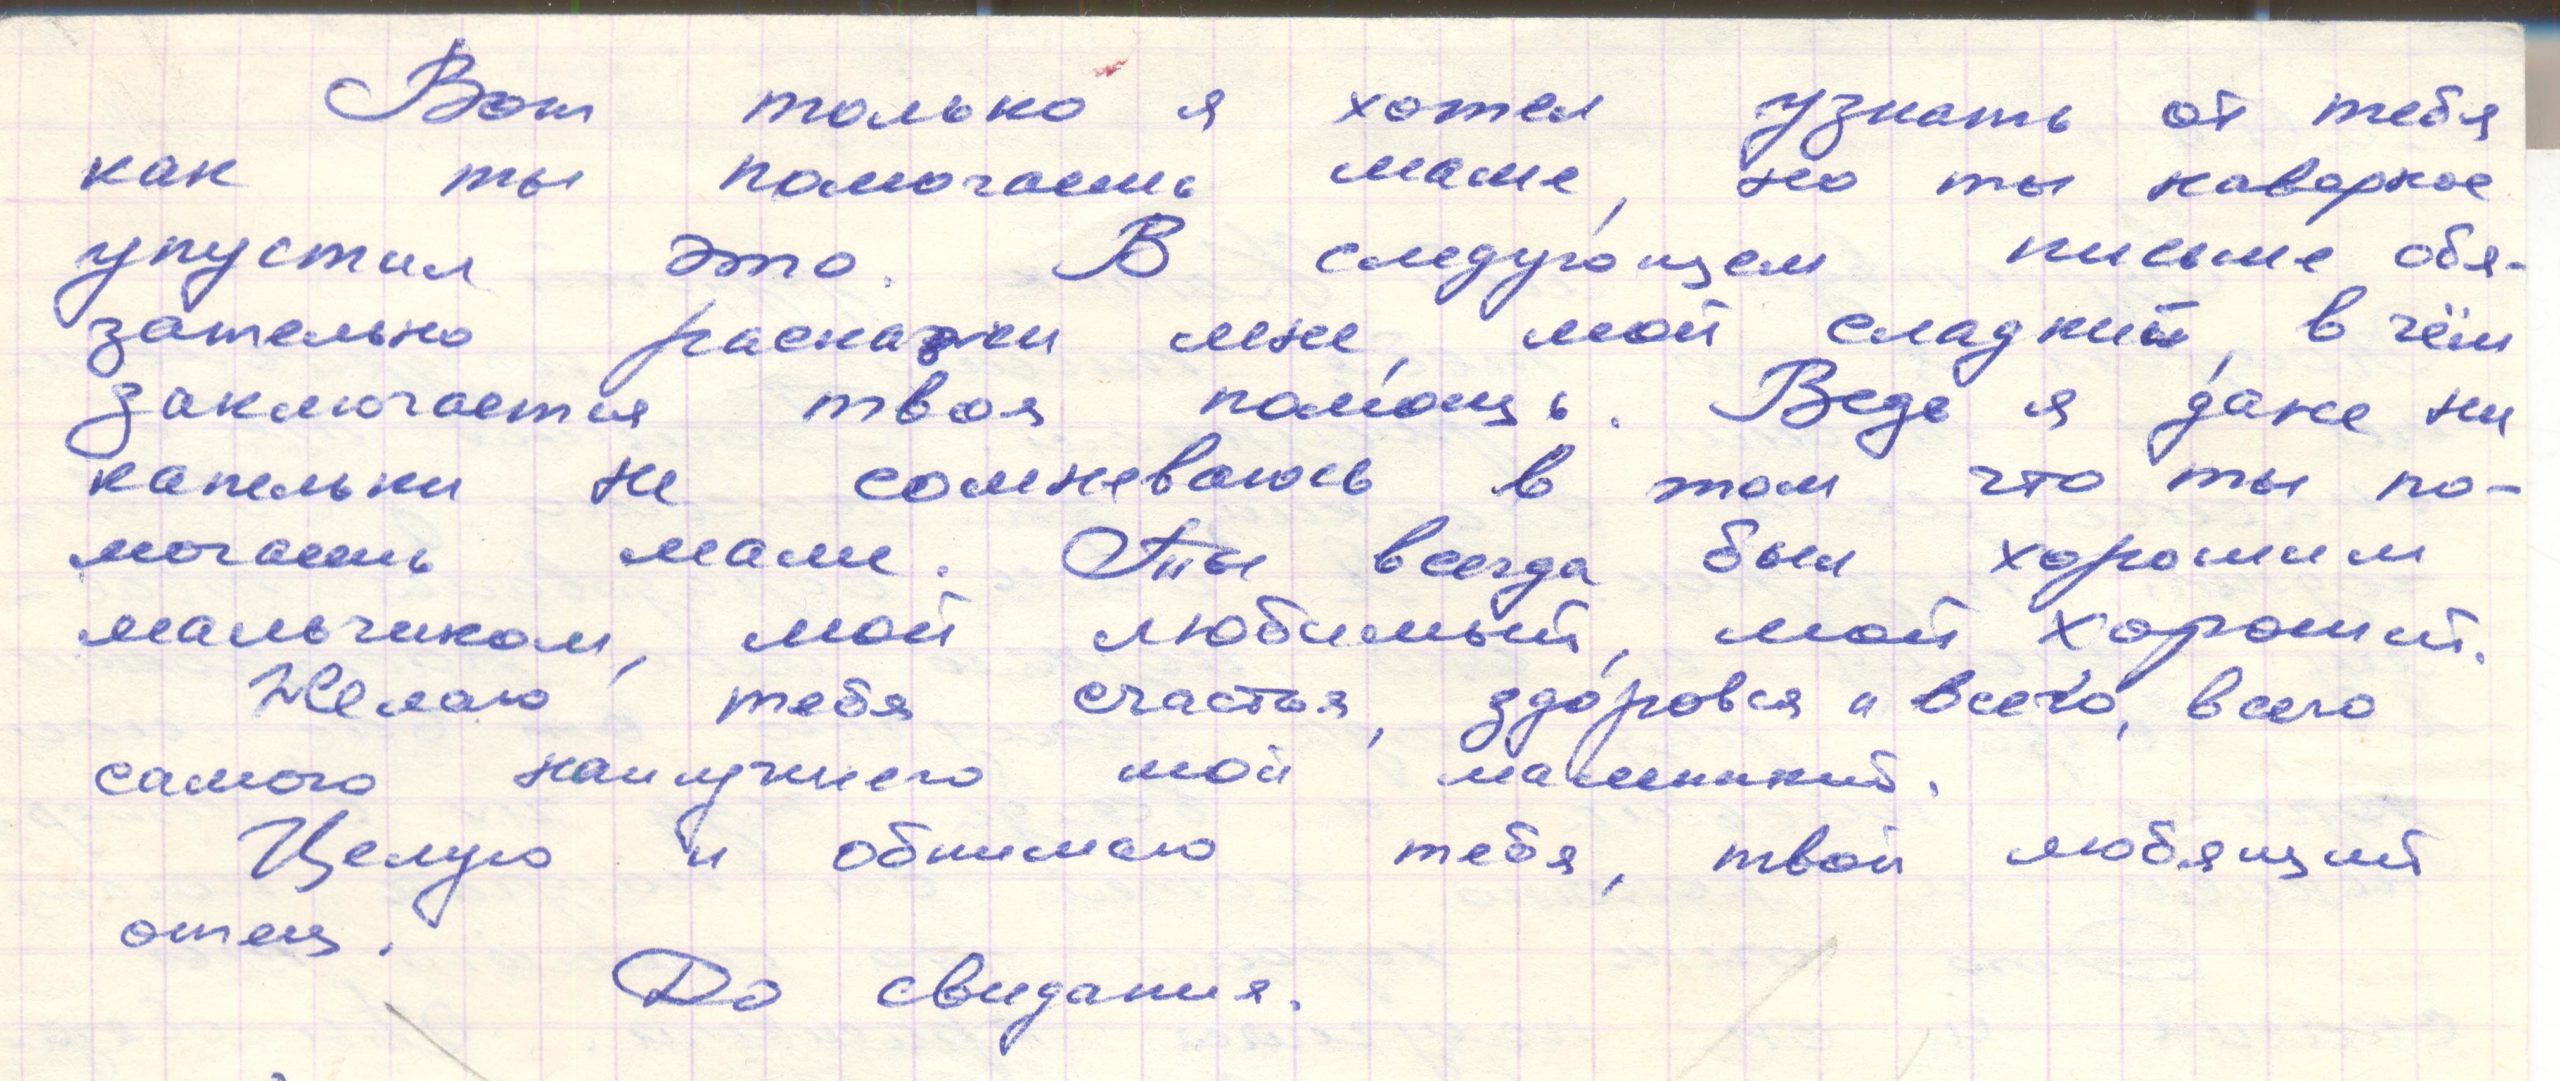 Вот только я хотел узнать от тебя
как ты помогаешь маме, но ты наверное
упустил это. В следующем письме обя-
зательно раскажи мне, мой сладкий, в чём
заключается твоя помощь. Ведь я даже ни
капельки не сомневаюсь в том что ты по-
могаешь маме. Ты всегда был хорошим
мальчиком, мой любимый, мой хороший.
Желаю тебя счастья, здоровья и всего, всего
самого наилучшего мой маленький.
Целую и обнимаю тебя, твой любящий
отец.
До свидания.